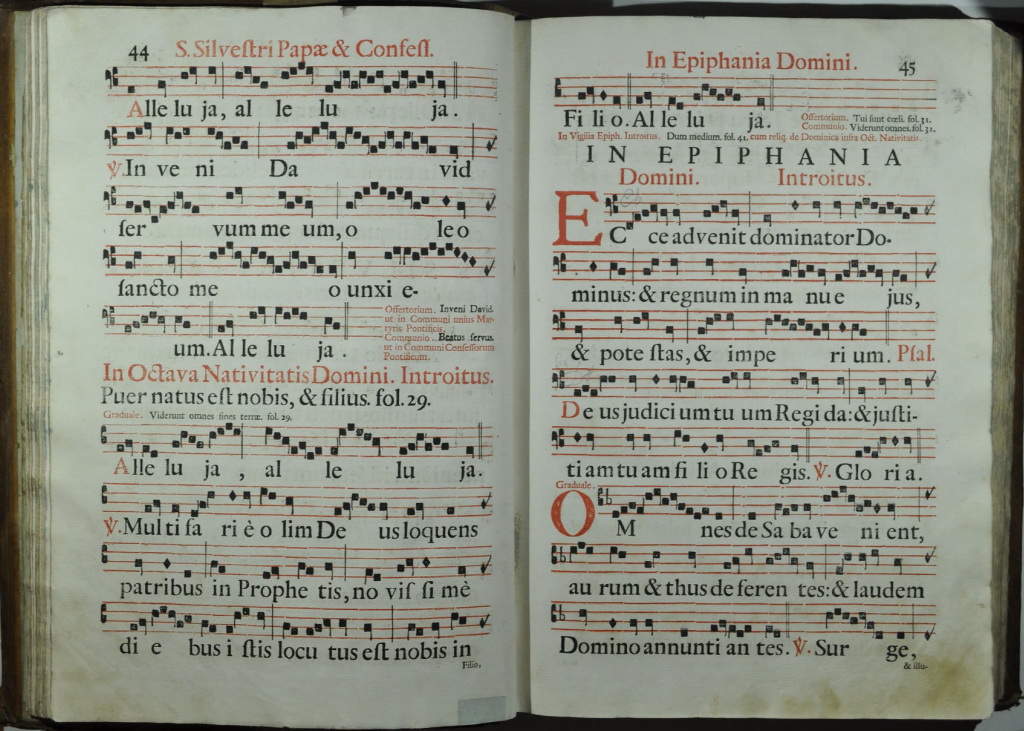 44 S. Silveſtri Papæ & Confeſſ.
Alle lu ja, al le lu ja.
℣. In ve ni Da vid
ſer vum me um, o leo
ſancto me o unxi e-
um. Al le lu ja.
Offertorium. Inveni David.
ut in Communi unius Mar-
tyris Pontificis.
Communio. Beatus ſervus.
ut in Communi Confeſſorum
Pontificum.
In Octava Nativitatis Domini. Introitus.
Puer natus eſt nobis, & filius. fol. 29.
Graduale. Viderunt omnes fines terræ. fol. 29.
Alle lu ja, al le lu ja.
℣. Mul ti fa ri è o lim De us loquens
patribus in Prophe tis, no viſ ſi mè
di e bus i ſtis locu tus eſt nobis in
Filio,
In Epiphania Domini. 45
Fi li o. Al le lu ja.
Offertorium. Tui ſunt cœli. fol. 31.
Communio. Viderunt omnes. fol. 31.
In Vigilia Epiph. Introitus. Dum medium. fol. 41. cum reliq. de Dominica infra Oct. Nativitatis.
IN EPIPHANIA
Domini. Introitus.
EC ce advenit dominator Do-
minus: & regnum in ma nu e jus,
& pote ſtas, & impe ri um. Pſal.
De us judici um tu um Regi da: & juſti-
tiam tu am fi li o Re gis. ℣. Glo ri a.
Graduale.
OM nes de Sa ba ve ni ent,
au rum & thus de feren tes: & laudem
Domino annunti an tes. ℣. Sur ge,
& illu-